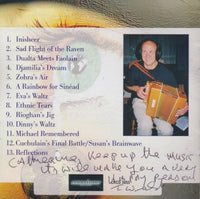 1. Inisheer
2. Sad Flight of the Raven
3. Dualta Meets Faolain
4. Djamilia's Dream
5. Zohra's Air
6. A Rainbow for Sinéad
7. Eva's Waltz
8. Ethnic Tears
9. Rioghan's Jig
10. Dinny's Waltz
11. Michael Remembered
12. Cuchulain's Final Battle/Susan's Brainwave
13. Reflections
Catherine, Keep up the music
It will make you a